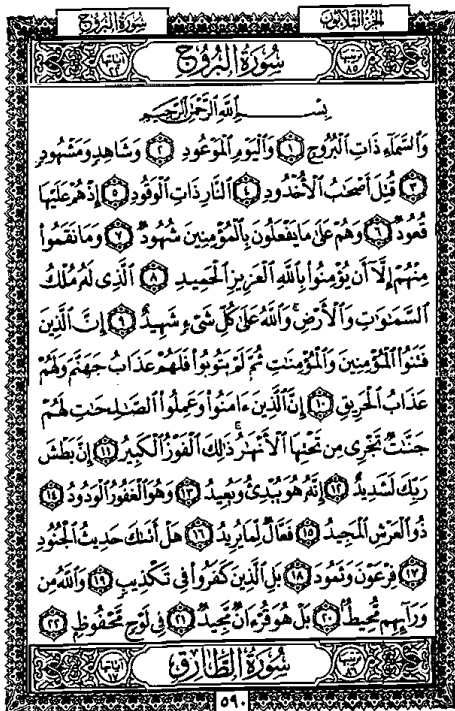 سُورَةُ البُرُوجِ الجُزْءُ الثَّلَاثُونَ
آيَاتُهَا ٢٢ سُورَةُ البُرُوجِ ترتيبها ٨٥
بِسْمِ اللَّهِ الرَّحْمَٰنِ الرَّحِيمِ
وَالسَّمَاءِ ذَاتِ الْبُرُوجِ ١ وَالْيَوْمِ الْمَوْعُودِ ٢ وَشَاهِدٍ وَمَشْهُودٍ
٣ قُتِلَ أَصْحَابُ الْأُخْدُودِ ٤ النَّارِ ذَاتِ الْوَقُودِ ٥ إِذْ هُمْ عَلَيْهَا
قُعُودٌ ٦ وَهُمْ عَلَىٰ مَا يَفْعَلُونَ بِالْمُؤْمِنِينَ شُهُودٌ ٧ وَمَا نَقَمُوا
مِنْهُمْ إِلَّا أَن يُؤْمِنُوا بِاللَّهِ الْعَزِيزِ الْحَمِيدِ ٨ الَّذِي لَهُ مُلْكُ
السَّمَٰوَٰتِ وَالْأَرْضِ ۚ وَاللَّهُ عَلَىٰ كُلِّ شَيْءٍ شَهِيدٌ ٩ إِنَّ الَّذِينَ
فَتَنُوا الْمُؤْمِنِينَ وَالْمُؤْمِنَٰتِ ثُمَّ لَمْ يَتُوبُوا فَلَهُمْ عَذَابُ جَهَنَّمَ وَلَهُمْ
عَذَابُ الْحَرِيقِ ١٠ إِنَّ الَّذِينَ ءَامَنُوا وَعَمِلُوا الصَّٰلِحَٰتِ لَهُمْ
جَنَّٰتٌ تَجْرِي مِن تَحْتِهَا الْأَنْهَٰرُ ۚ ذَٰلِكَ الْفَوْزُ الْكَبِيرُ ١١ إِنَّ بَطْشَ
رَبِّكَ لَشَدِيدٌ ١٢ إِنَّهُ هُوَ يُبْدِئُ وَيُعِيدُ ١٣ وَهُوَ الْغَفُورُ الْوَدُودُ ١٤
ذُو الْعَرْشِ الْمَجِيدُ ١٥ فَعَّالٌ لِّمَا يُرِيدُ ١٦ هَلْ أَتَىٰكَ حَدِيثُ الْجُنُودِ
١٧ فِرْعَوْنَ وَثَمُودَ ١٨ بَلِ الَّذِينَ كَفَرُوا فِي تَكْذِيبٍ ١٩ وَاللَّهُ مِن
وَرَائِهِم مُّحِيطٌ ٢٠ بَلْ هُوَ قُرْءَانٌ مَّجِيدٌ ٢١ فِي لَوْحٍ مَّحْفُوظٍ ٢٢
آيَاتُهَا ١٧ سُورَةُ الطَّارِقِ ترتيبها ٨٦
٥٩٠